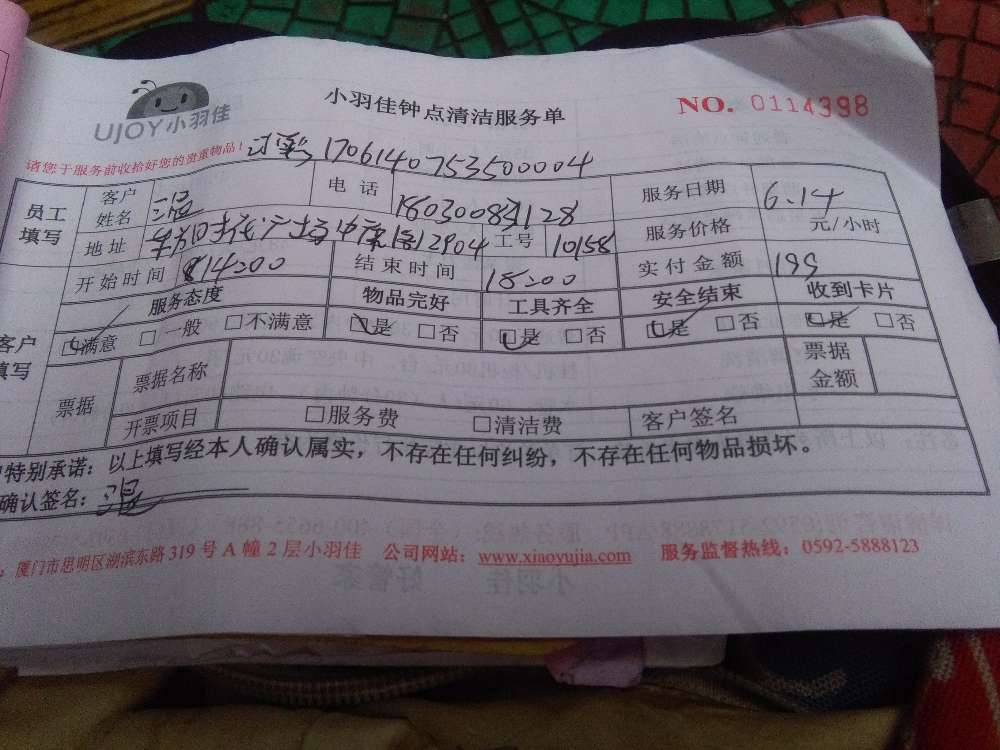 UJOY小羽佳
小羽佳钟点清洁服务单
NO. 0114398
请您于服务前收拾好您的贵重物品!
1706140753500004
员工填写 客户姓名 电话 18030083128 服务日期 6.14
地址 工号 10158 服务价格 元/小时
开始时间 14:00 结束时间 18:00 实付金额 199
客户填写 服务态度 物品完好 工具齐全 安全结束 收到卡片
☑满意 □一般 □不满意 ☑是 □否 ☑是 □否 ☑是 □否 ☑是 □否
票据 票据名称 票据金额
开票项目 □服务费 □清洁费 客户签名
特别承诺：以上填写经本人确认属实，不存在任何纠纷，不存在任何物品损坏。
确认签名：
厦门市思明区湖滨东路 319 号 A 幢 2 层小羽佳 公司网站：www.xiaoyujia.com 服务监督热线：0592-5888123